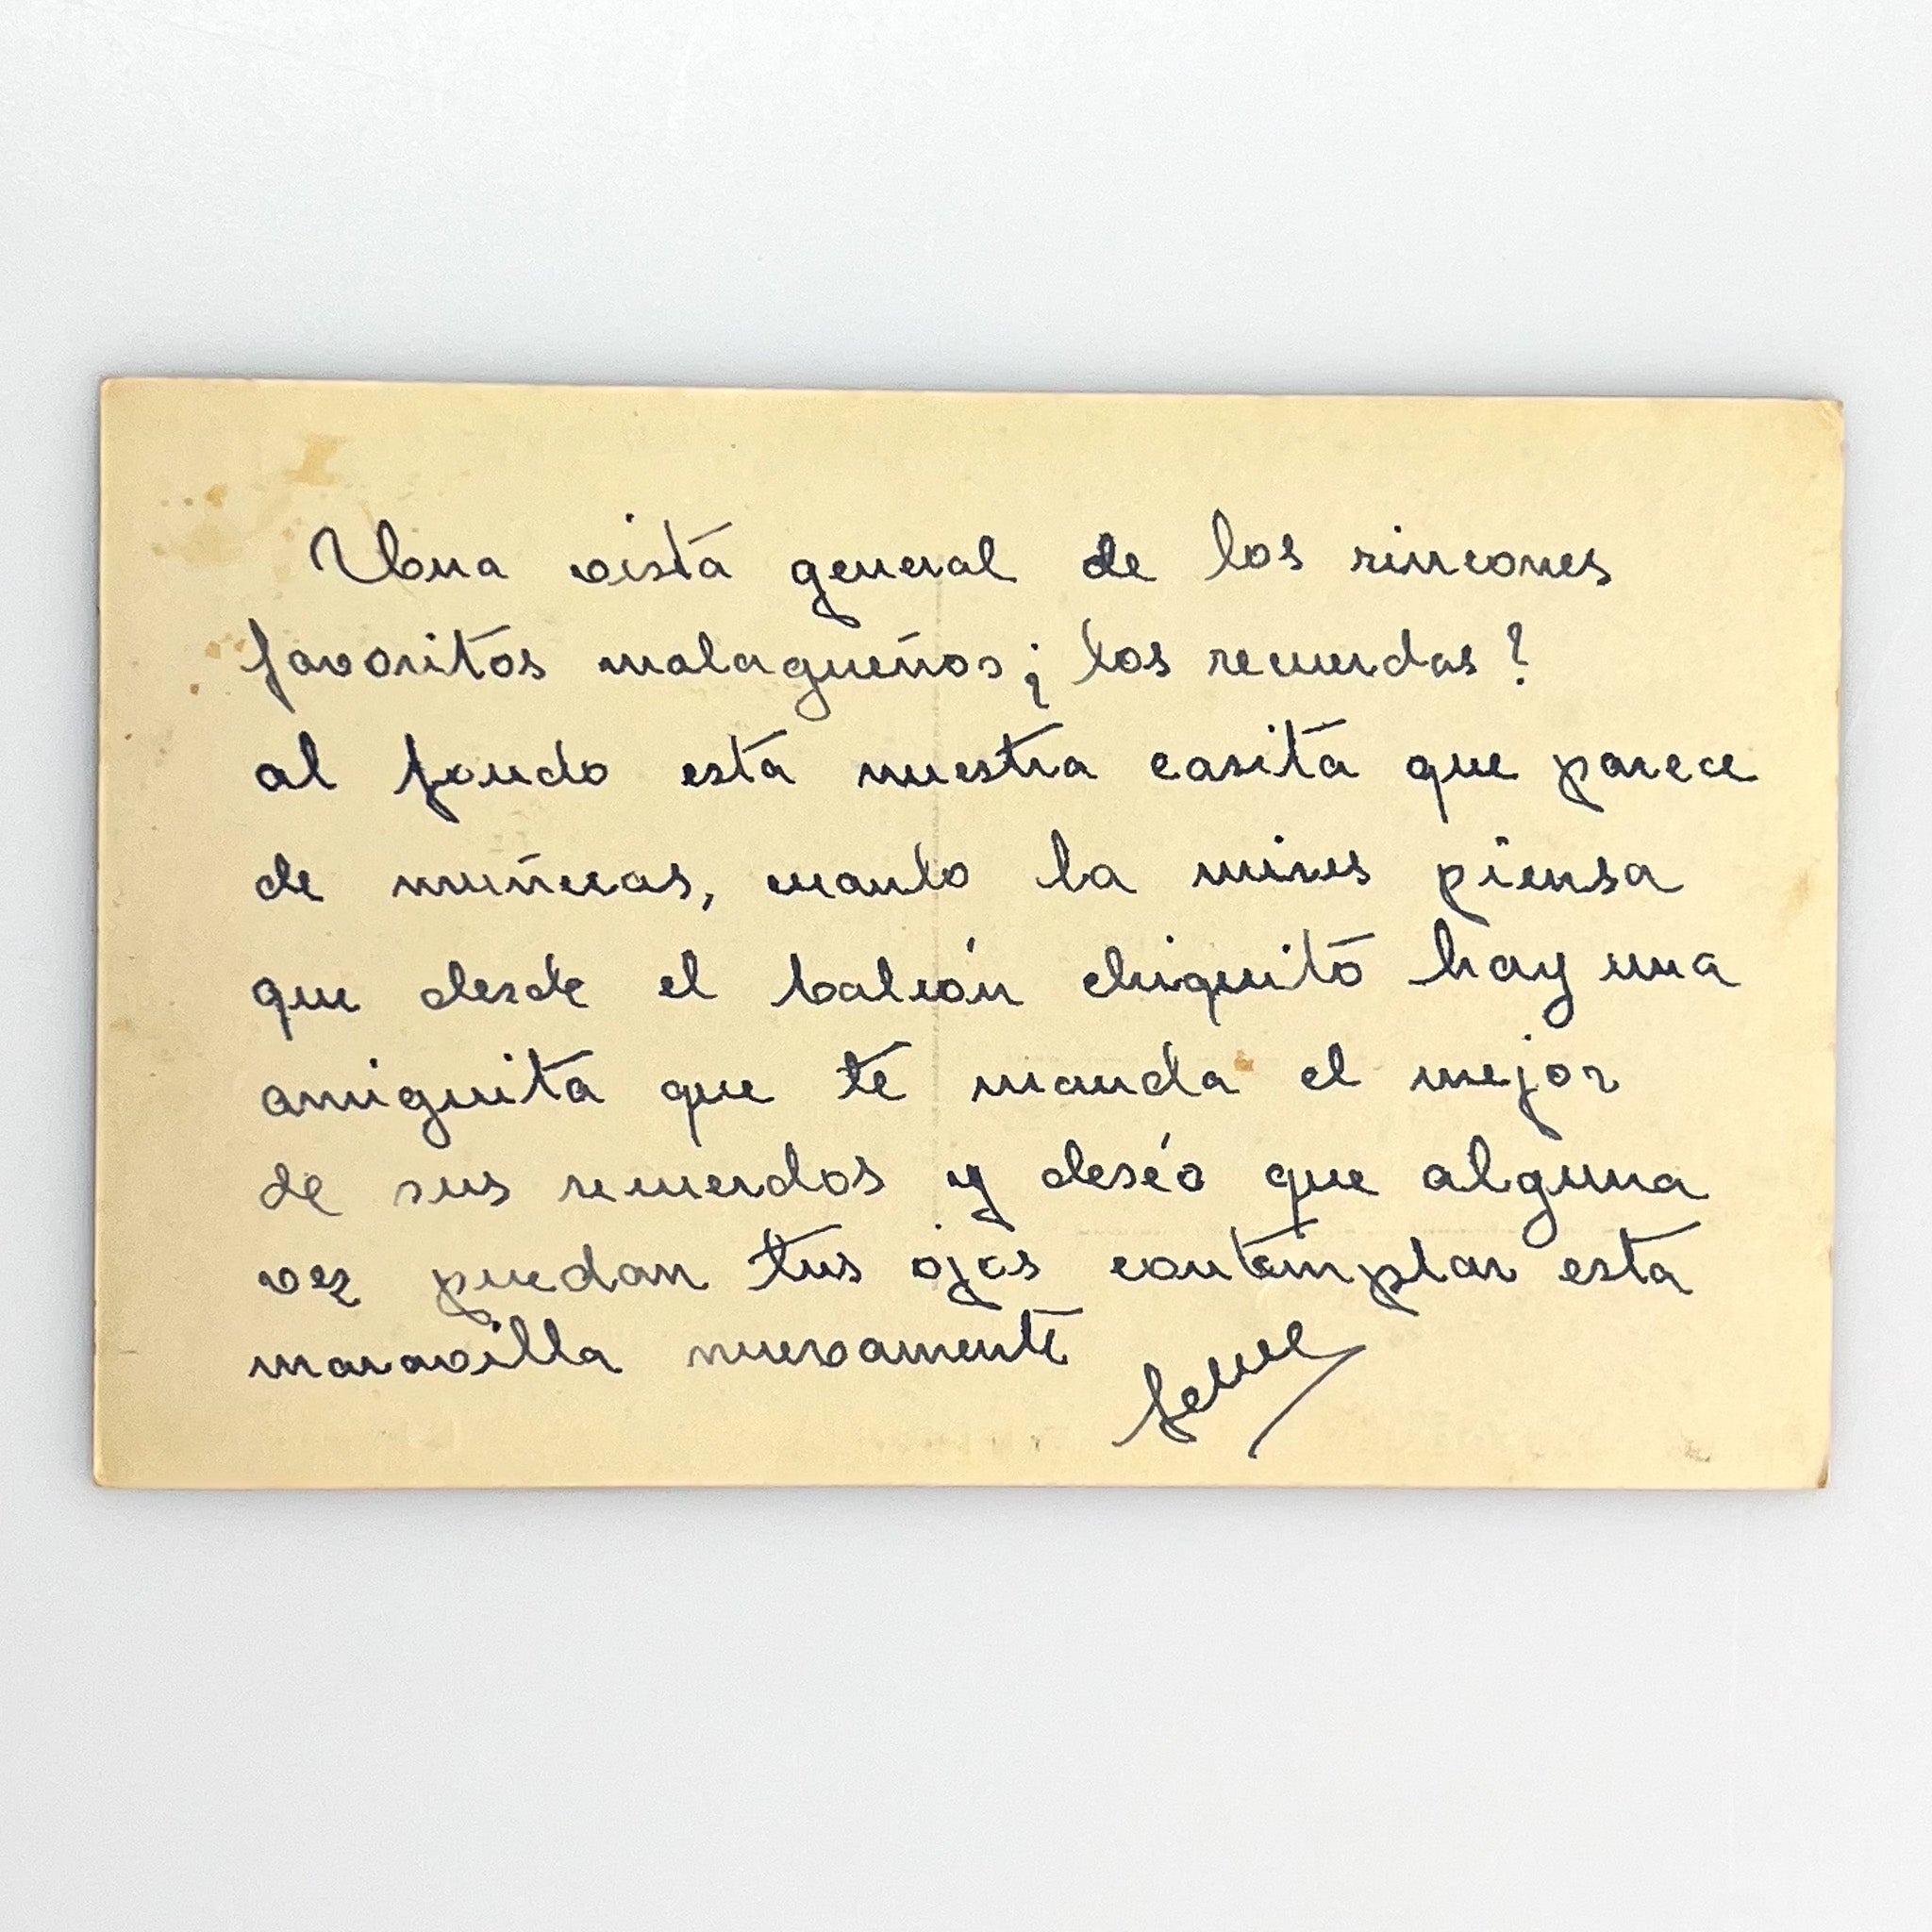 Una vista general de los rincones
favoritos malagueños ¿ los recuerdas?
al fondo está nuestra casita que parece
de muñecas, cuanto la mires piensa
que desde el balcón chiquito hay una
amiguita que te manda el mejor
de sus recuerdos y deséo que alguna
vez puedan tus ojos contemplar esta
maravilla nuevamente